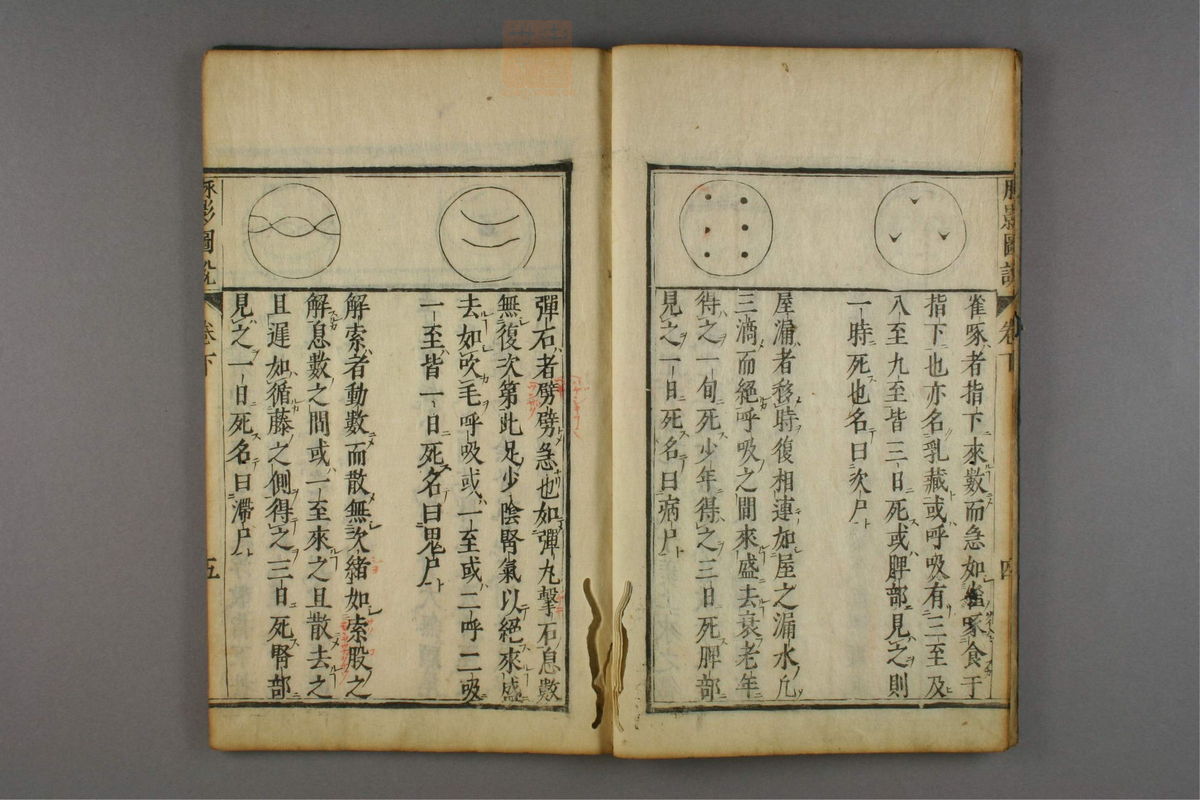 雀啄者指下來數而急如雀啄食于
指下也亦名乳藏或呼吸有三至及
入至九至皆三日死或脾部見之則
一時死也名曰次尸
屋漏者移時復相連如屋之漏水凢
三滴而絕呼吸之間來盛去衰老年
得之一旬死少年得之三日死脾部
見之一日死名曰病尸
脉影圖說
卷下
四
彈石者劈劈急也如彈丸擊石息數
無復次第此足少陰腎氣以絕來盛
去如吹毛呼吸或一至或二呼二吸
一至皆一日死名曰鬼尸
解索者動數而散無次緒如索股之
解息數之間或一至來之且散去之
且遲如循藤之側得之三日死腎部
見之一日死名曰滯尸
脉影圖說
卷下
五